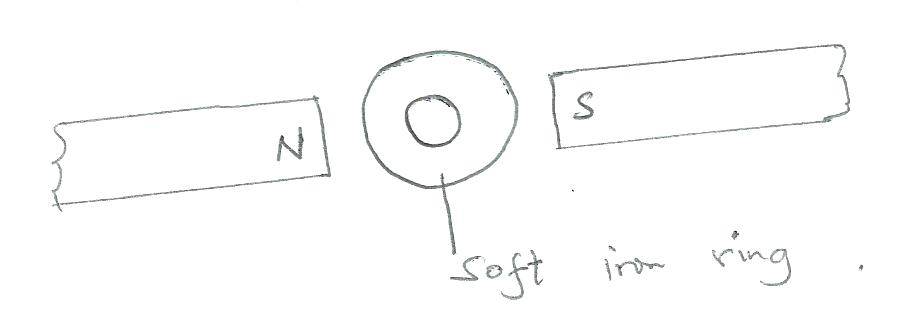 N
S
Soft iron ring .